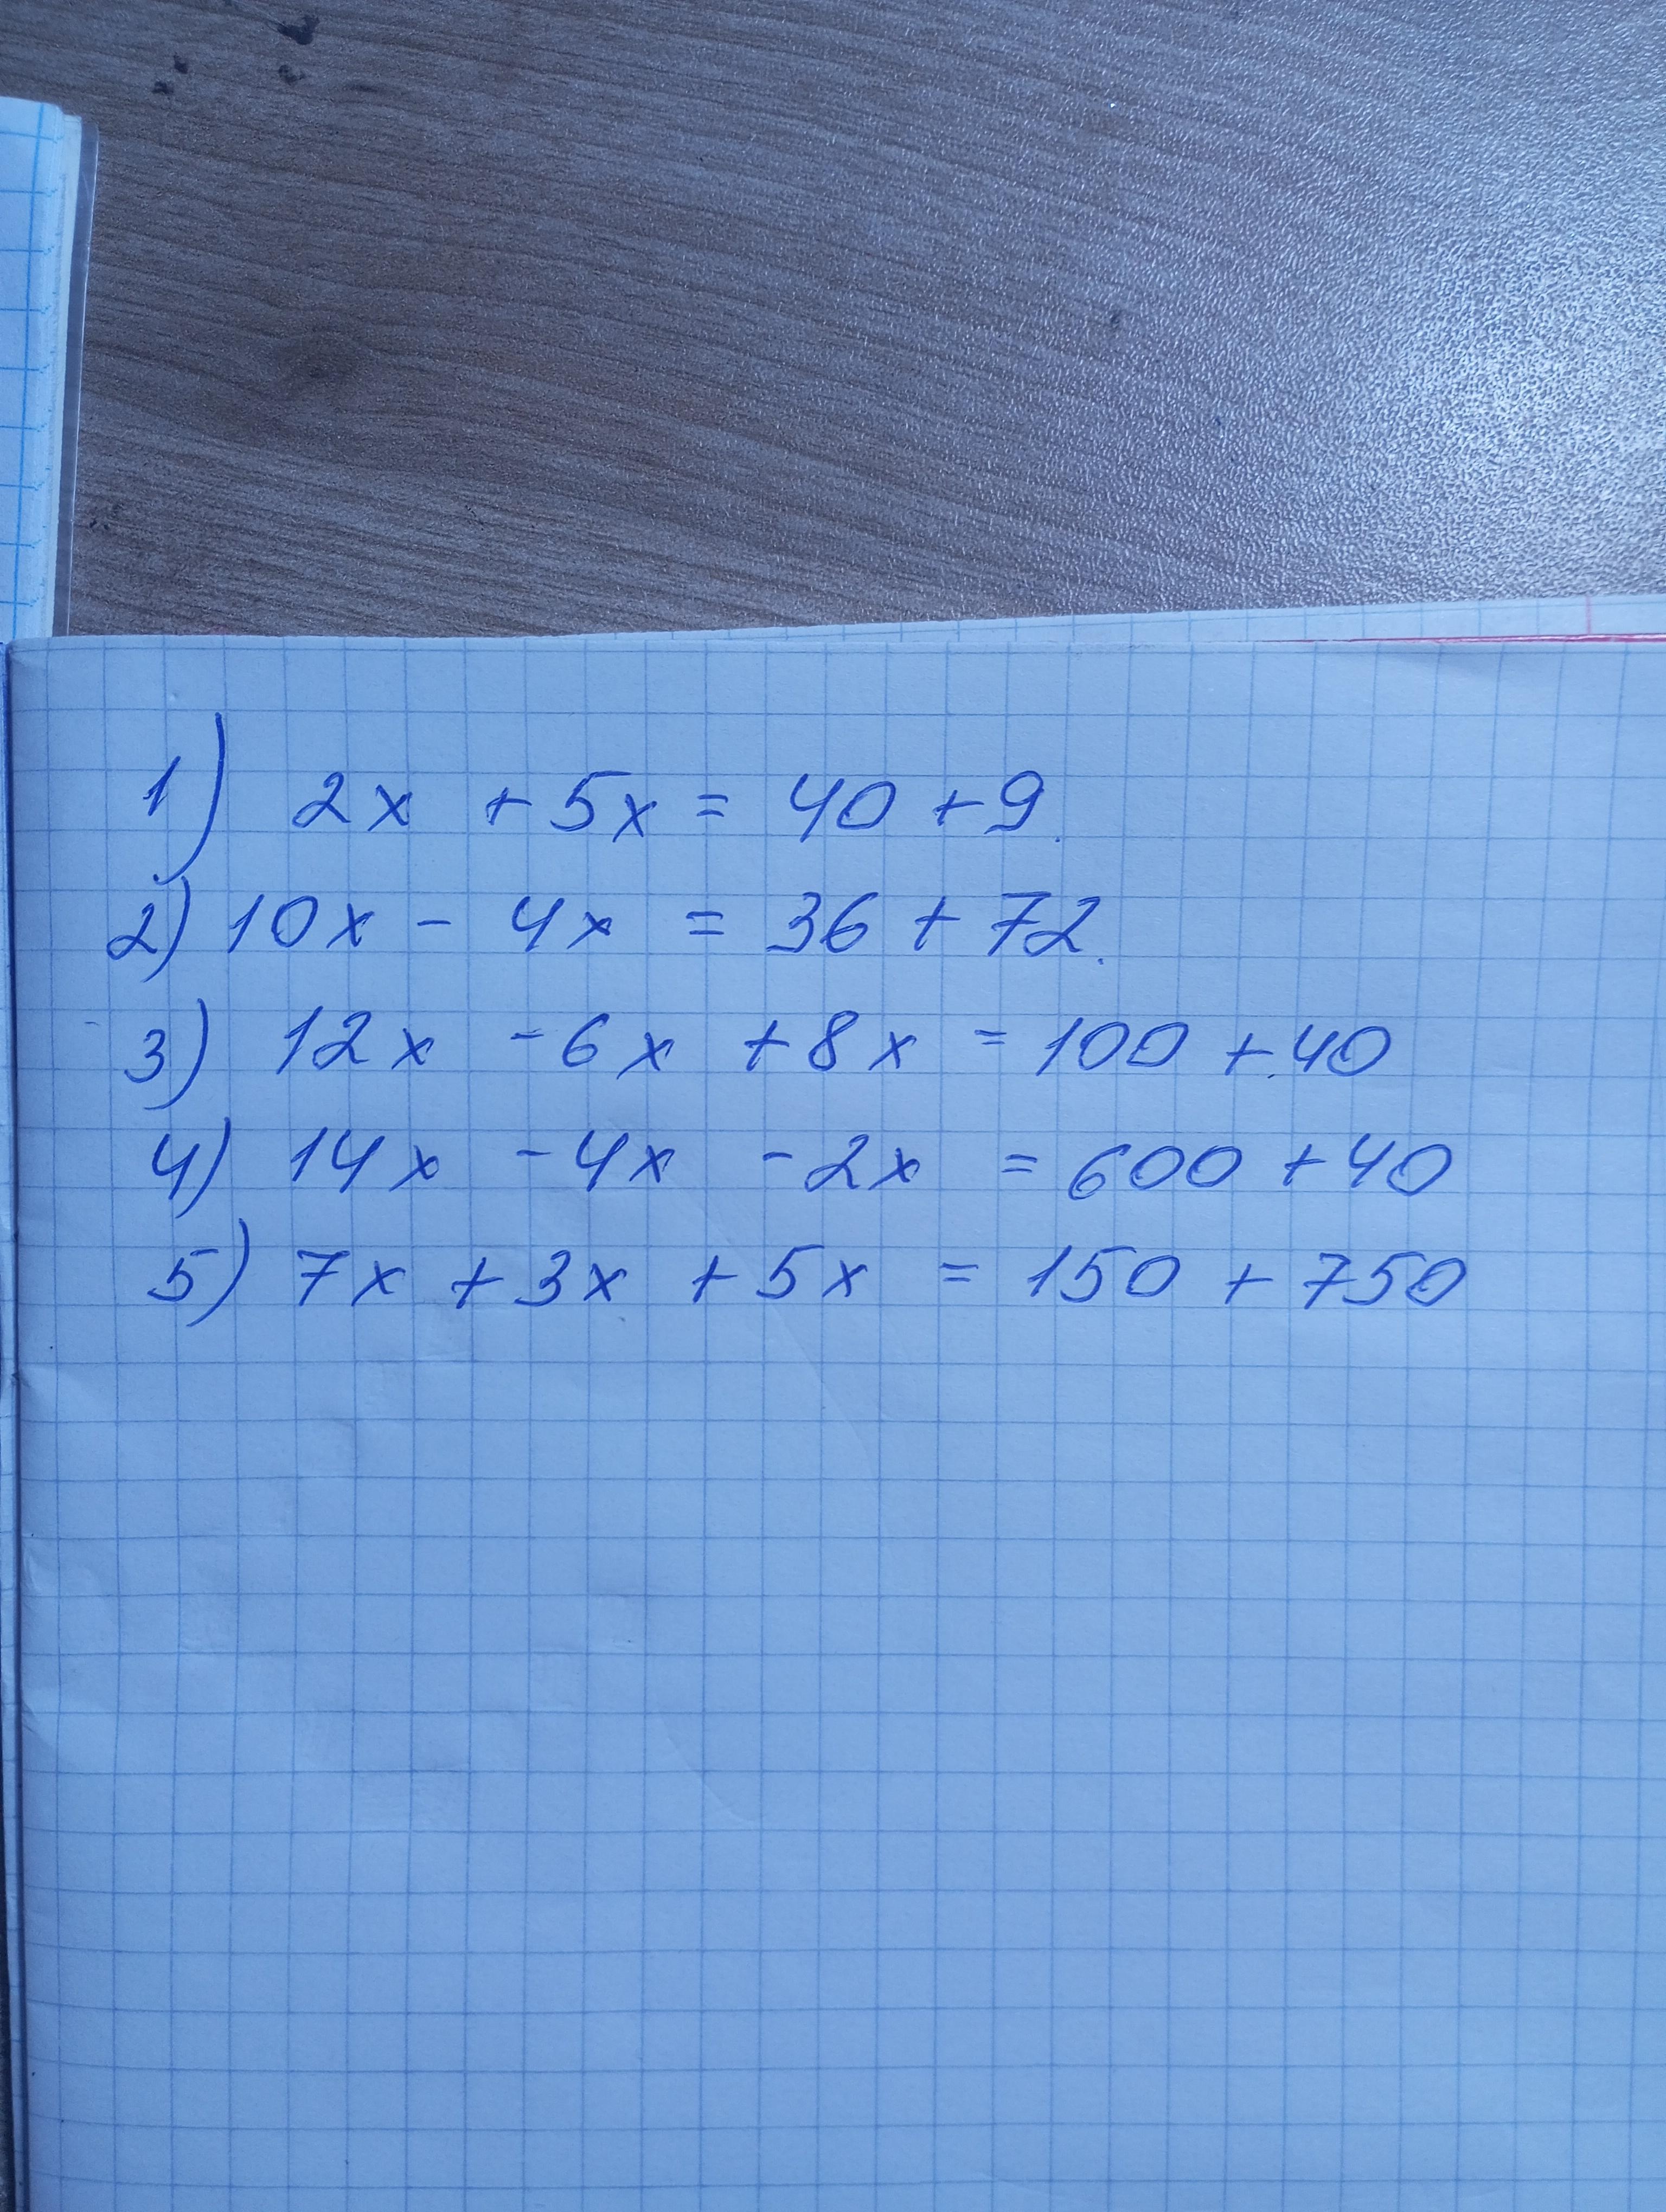 1) 2x + 5x = 40 + 9.
2) 10x - 4x = 36 + 72.
3) 12x - 6x + 8x = 100 + 40
4) 14x - 4x - 2x = 600 + 40
5) 7x + 3x + 5x = 150 + 750